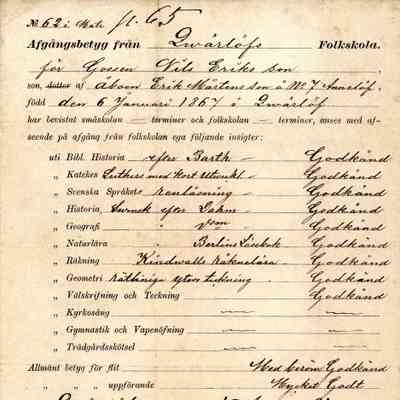 № 62 i Matr. fl. 65
Afgångsbetyg från Qwärlöfs Folkskola.
för Gossen Nils Eriksson
son, dotter af Åboen Erik Mårtensson å № 7 Anarlöf,
född den 6 Januari 1867 i Qwärlöf
har bevistat småskolan — terminer och folkskolan — terminer, anses med af-
seende på afgång från folkskolan ega följande insigter:
uti Bibl. Historia efter Barth — Godkänd
„ Katekes Luthers med kort Utveckl. Godkänd
„ Svenska Språkets ränläsning — Godkänd
„ Historia, Svensk efter Dahm — Godkänd
„ Geografi „ Dom — Godkänd
„ Naturlära „ Berlins Läsebok Godkänd
„ Räkning Kindwalls räknelära. Godkänd
„ Geometri rätliniga ytors teckning Godkänd
„ Välskrifning och Teckning — Godkänd
„ Kyrkosång — —
„ Gymnastik och Vapenöfning — —
„ Trädgårdsskötsel — —
Allmänt betyg för flit Med beröm Godkänd
„ „ „ uppförande Mycket Godt